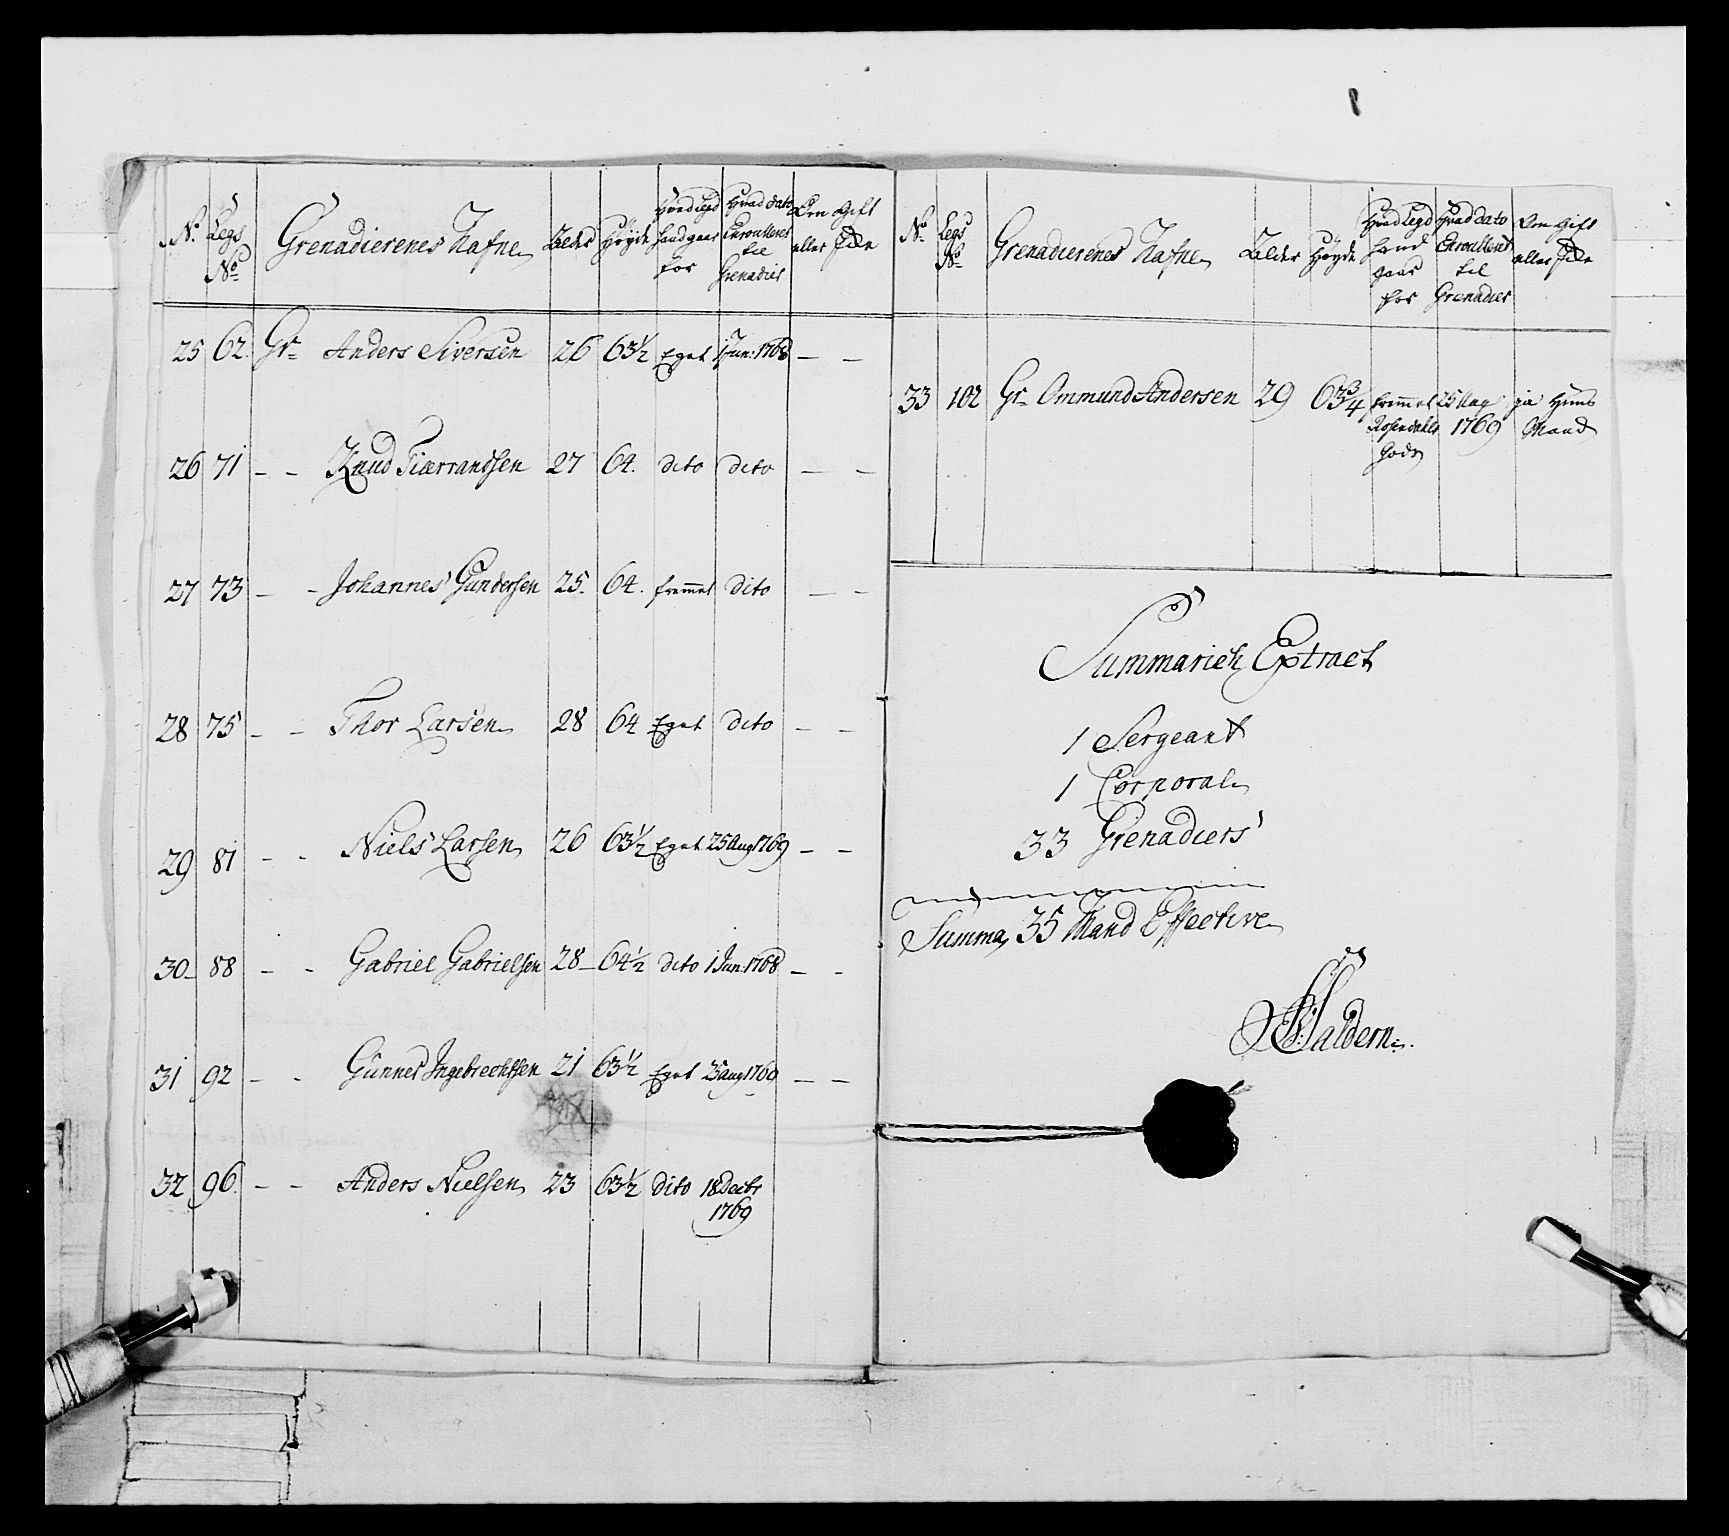 No. Legs No. Grenadierenes Nafne Alder Høyde Hvad Legd hand gaar for Hvad dato Enroulleret til Grenadier Om Gift eller Ide
25 62. Gr. Anders Siversen 26 63½ Eget 1 Jun: 1768 — —
26 71 — — Knud Tiærrandsen 27 64. dito dito — —
27 73 — — Johannes Gundersen 25. 64. fremmet dito — —
28 75 — — Thor Larsen 28 64 Eget dito — —
29 81 — — Niels Larsen 26 63½ Eget 25 Aug 1769 — —
30 88 — — Gabriel Gabrielsen 28 64½ dito 1 Jun: 1768 — —
31 92 — — Gunner Ingebrechtsen 21 63½ Eget 25 Aug 1769 — —
32 96 — — Anders Nielsen 23 63½ dito 18 Decbr 1769
No. Legs No. Grenadierenes Nafne Alder Høyde Hvad Legd hand gaar for Hvad dato Enroulleret til Grenadier Om Gift eller Ide
33 102 Gr. Ommund Andersen 29 63¾ fremmet Rosendahls Gods 25 Aug 1769 ja Huus Mand
Summarich Extract
1 Sergeant
1 Corporal
33 Grenadiers
Summa 35 Mand Effective
Haldern